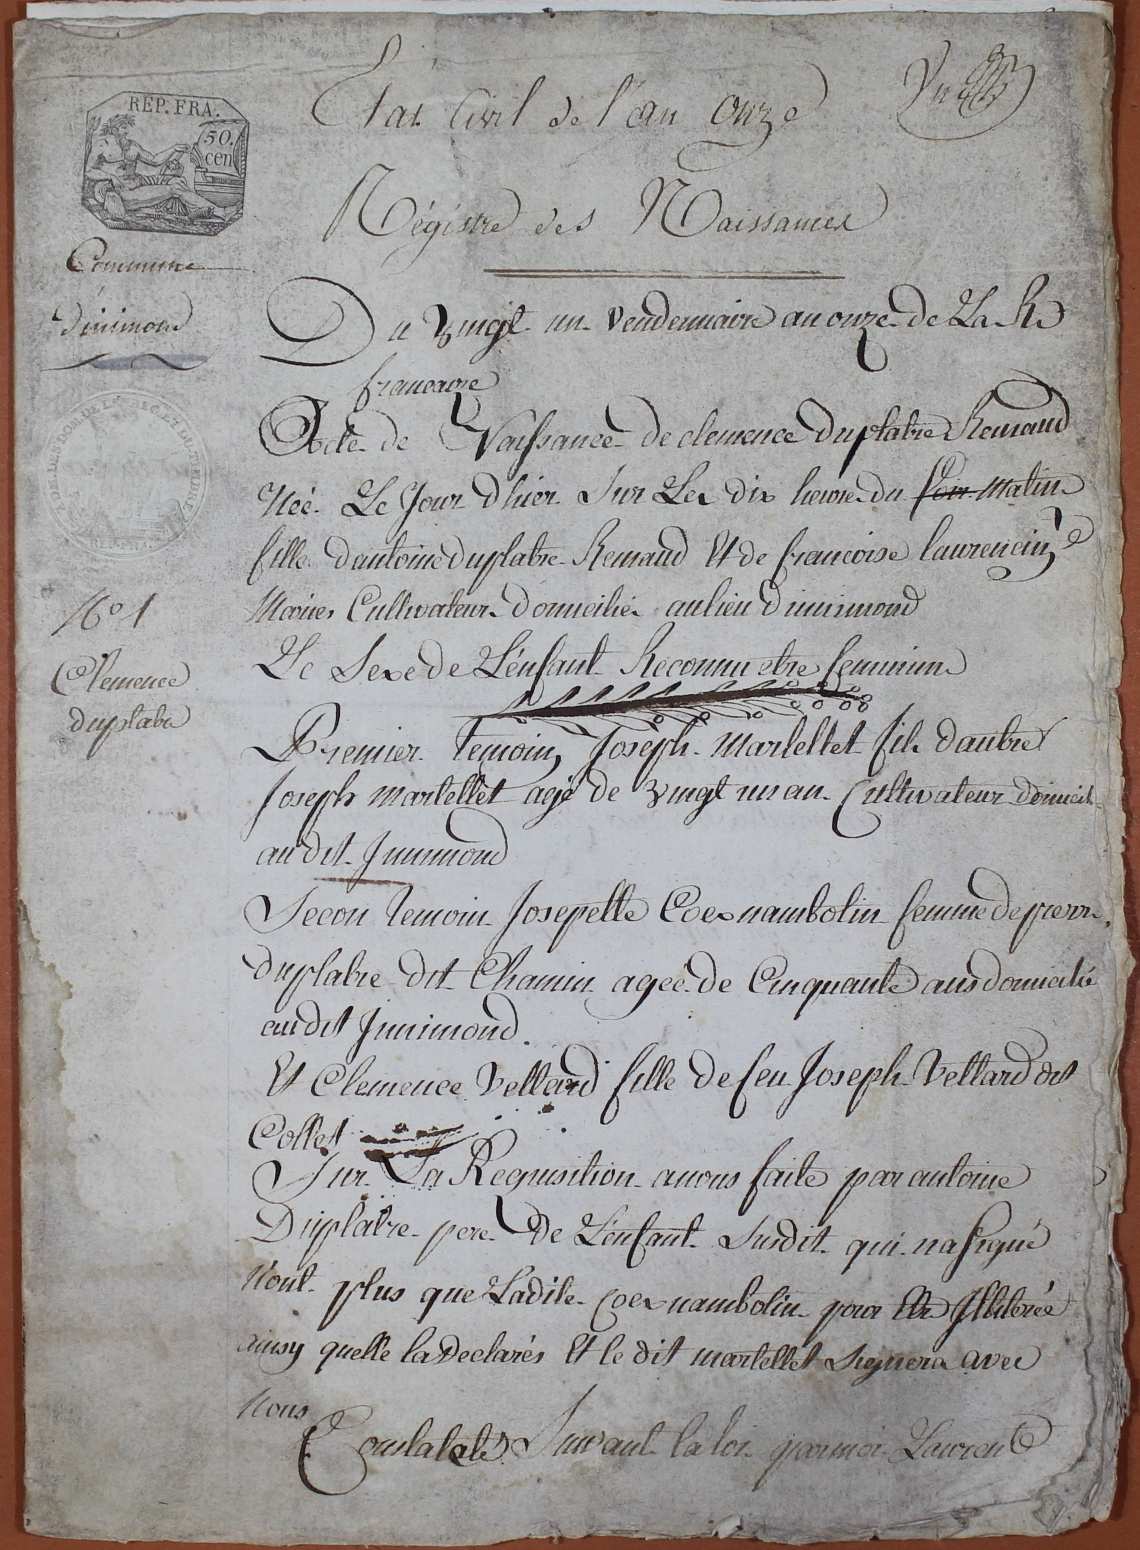 REP. FRA.
50.
cen
État Civil de l'an Onze
Régistre des Naissances
Commune
d'inimond
Du vingt un Vendemiaire an onze de La R
francaise
Acte de Naissance de clemence Duplatre Remaud
Née Le Jour d'hier Sur Les dix heure du soir matin
fille d'antoine Duplatre Remaud Et de francoise laurencin
Mariés Cultivateurs domicilié au lieu d'inimond
Le Sexe de L'enfant Reconnu etre feminin
No 1
Clemence
duplatre
Premier temoin Joseph martellet fils d'autre
Joseph martellet agé de vingt un an Cultivateur domicil
au dit Innimond
Secon temoin Josepette Coexnambolin femme de pierre
duplatre dit Chamin agée de Cinquante ans domicilié
au dit Innimond.
Et Clemence Vellard fille de feu Joseph Vellard dit
Collet
Sur La Requisition a nous faite par antoine
Duplatre pere de L'enfant Susdit qui na signé
Nont plus que Ladite Coexnambolin pour etre Illiterée
ainsy quelle la Declarés Et le dit martellet Signera avec
Nous
Constatés Suivant la loi par moi Laurent